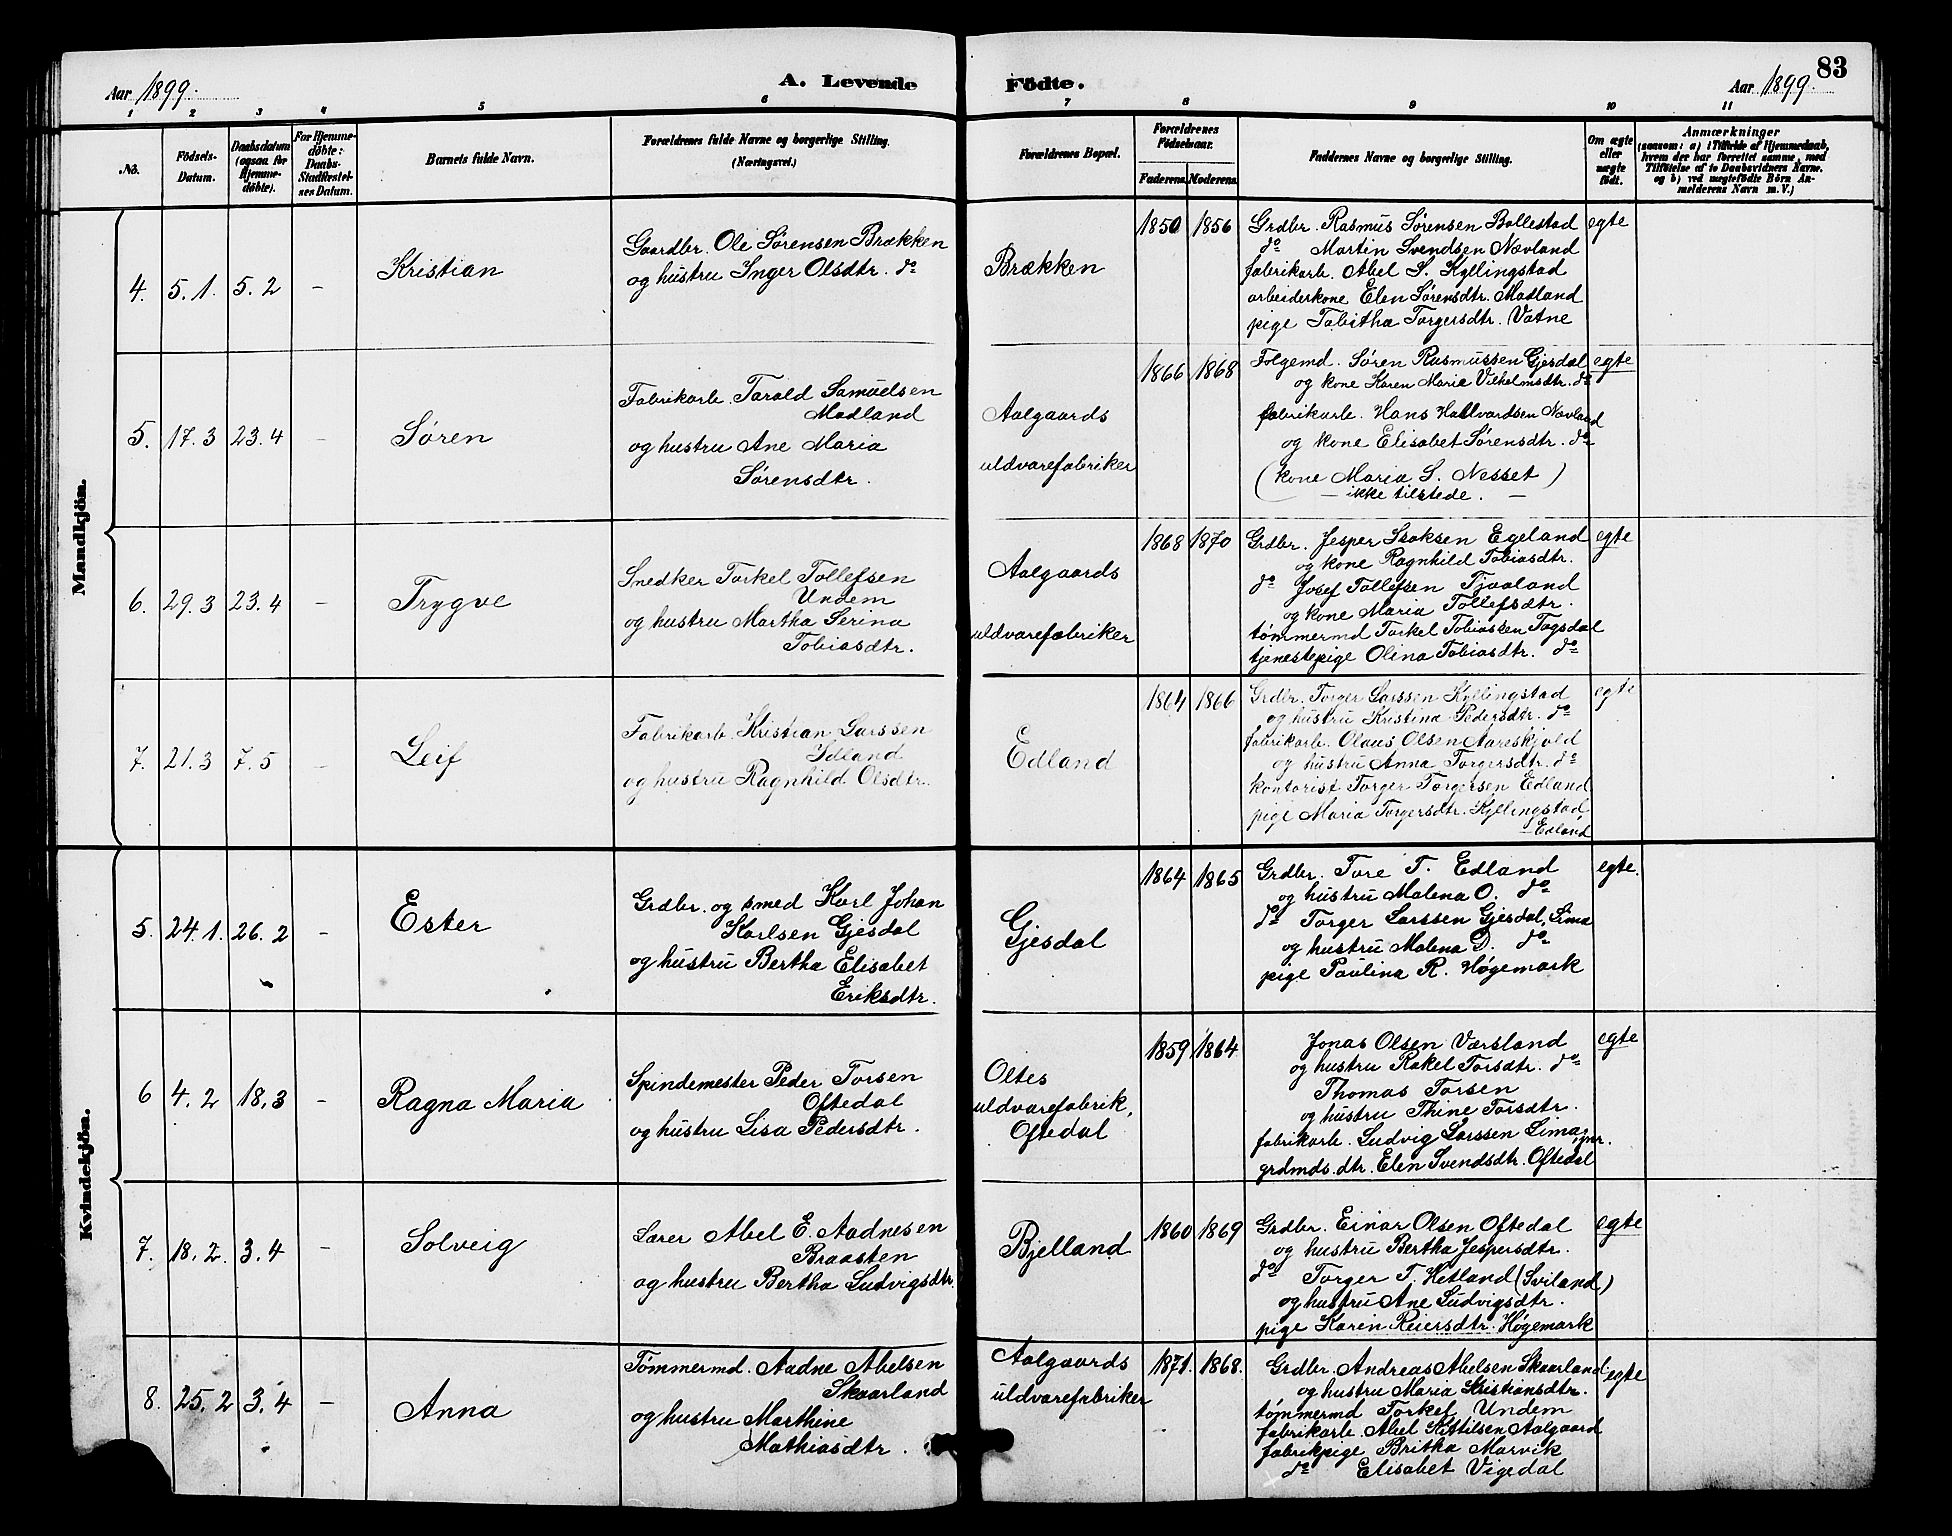 83
Aar 1899.
A. Levende Födte.
Aar 1899.
1 2 3 4 5 6 7 8 9 10 11
No.
Födsels-Datum.
Daabsdatum (ogsaa for Hjemme-døbte).
For Hjemme-døbte: Daabs-Stadfæstel-ses Datum.
Barnets fulde Navn.
Forældrenes fulde Navne og borgerlige Stilling.
(Næringsvei.)
Forældrenes Bopæl.
Forældrenes Födselsaar.
Faderens. Moderens.
Faddernes Navne og borgerlige Stilling.
Om ægte eller uægte født.
Anmærkninger
(saasom: a) i Tilfælde af Hjemmedaab,
hvem der har forrettet samme, med
Tilföielse af to Daabsvidners Navne.
og b) ved uægtefödte Börn An-
melderens Navn m. V.)
Mandkjön.
4. 5.1. 5.2 –
Kristian
Gaardbr. Ole Sørensen Brækken
og hustru Inger Olsdtr. do
Brækken
1850 1856
Grdbr. Rasmus Sørensen Bollestad
do Martin Svendsen Nævland
fabrikarb. Abel S. Kyllingstad
arbeiderkone Elen Sørensdtr. Madland
pige Tabitha Torgersdtr. Vatne
egte
5. 17.3 23.4 –
Søren
Fabrikarb. Tarald Samuelsen
Madland
og hustru Ane Maria
Sørensdtr.
Aalgaards
uldvarefabriker
1866 1868
Folgemd. Søren Rasmussen Gjesdal
og kone Karen Maria Vilhelmsdtr. do
fabrikarb. Hans Hallvardsen Nævland
og kone Elisabet Sørensdtr. do
(kone Maria S. Nesset)
– ikke tilstede. –
egte
6. 29.3 23.4 –
Trygve
Snedker Torkel Tollefsen
Undem
og hustru Martha Serina
Tobiasdtr.
Aalgaards
uldvarefabriker
1868 1870
Grdbr. Jesper Isaksen Egeland
og kone Ragnhild Tobiasdtr.
do Josef Tollefsen Tjaaland
og kone Maria Tollefsdtr.
tømmermd Torkel Tobiassen Togsdal
tjenestepige Olina Tobiasdtr. do
egte
7. 21.3 7.5 –
Leif
Fabrikarb. Kristian Larssen
Idland
og hustru Ragnhild Olsdtr.
Edland
1864 1866
Grdbr. Torger Larssen Kyllingstad
og hustru Kristina Pedersdtr. do
fabrikarb. Olaus Olsen Aareskjold
og hustru Anna Torgersdtr. do
kontorist Torger Torgersen Edland
pige Maria Torgersdtr. Kyllingstad,
Edland
egte
Kvindekjön.
5. 24.1. 26.2 –
Ester
Grdbr. og smed Karl Johan
Karlsen Gjesdal
og hustru Bertha Elisabet
Eriksdtr.
Gjesdal
1864 1865
Grdbr. Tore T. Edland
og hustru Malena O. do
do Torger Larssen Gjesdal, Lima
og hustru Malena D. do
pige Paulina R. Høgemark
egte.
6 4.2 18.3 –
Ragna Maria
Spindemester Peder Torsen
Oftedal
og hustru Lisa Pedersdtr.
Oltes
uldvarefabrik,
Oftedal
1859 1864
Jonas Olsen Værsland
og hustru Rakel Torsdtr. do
Thomas Torsen
og hustru Thine Torsdtr.
fabrikarb. Ludvig Larssen Lima,
grdmds. dtr. Elen Svendsdtr. Oftedal
egte
7. 18.2. 3.4 –
Solveig
Lærer Abel E. Aadnesen
Braasten
og hustru Bertha Ludvigsdtr.
Bjelland
1860 1869
Grdbr. Einar Olsen Oftedal
og hustru Bertha Jespersdtr.
do Torger T. Hetland (Sviland)
og hustru Ane Ludvigsdtr.
pige Karen Reiersdtr. Høgemark
egte
8. 25.2 3.4 –
Anna
Tømmermd. Aadne Abelsen
Skaarland
og hustru Marthine
Mathiasdtr.
Aalgaards
uldvarefabriker
1871. 1868.
Grdbr. Andreas Abelsen Skaarland
og hustru Maria Kristiansdtr.
tømmermd Torkel Undem
fabrikarb. Abel Kittilsen Aalgaard
fabrikpige Britha Marvik
do Elisabet Vigedal
egte